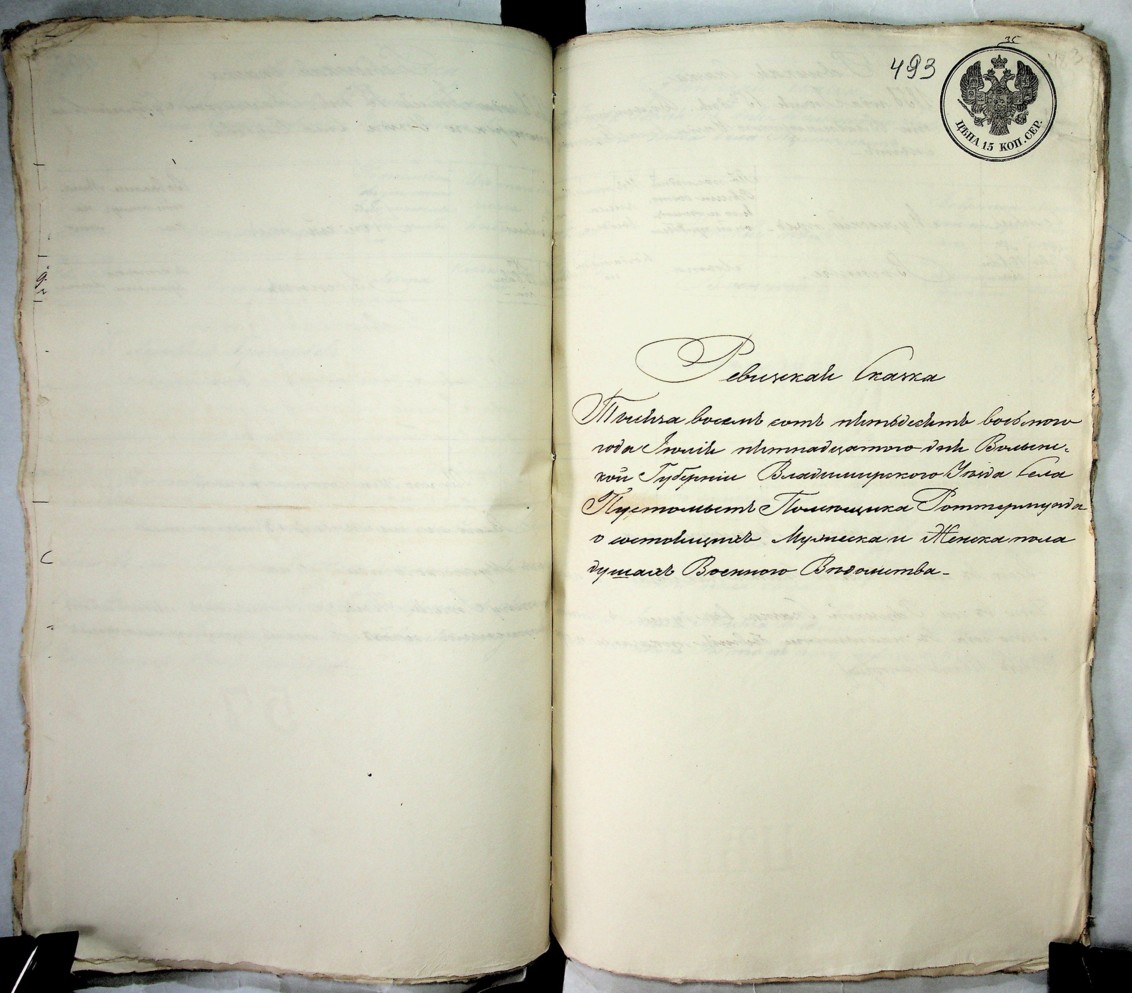 493
ЦѢНА 15 КОП. СЕР.
Ревизская Сказка
Тысяча восемь сотъ пятьдесятъ восьмого
года Іюля пятнадцатого дня Волынс-
кой Губерніи Владимирского Уѣзда Села
Пустомытъ Помещика
о состоящихъ Мужеска и Женска пола
душахъ Военного Вѣдомства.